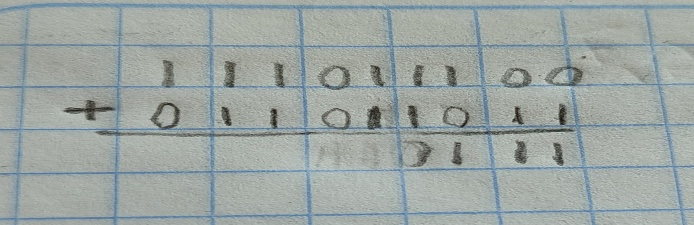 1 1 1 0 1 1 1 0 0
+ 0 1 1 0 1 1 0 1 1
0 1 1 1